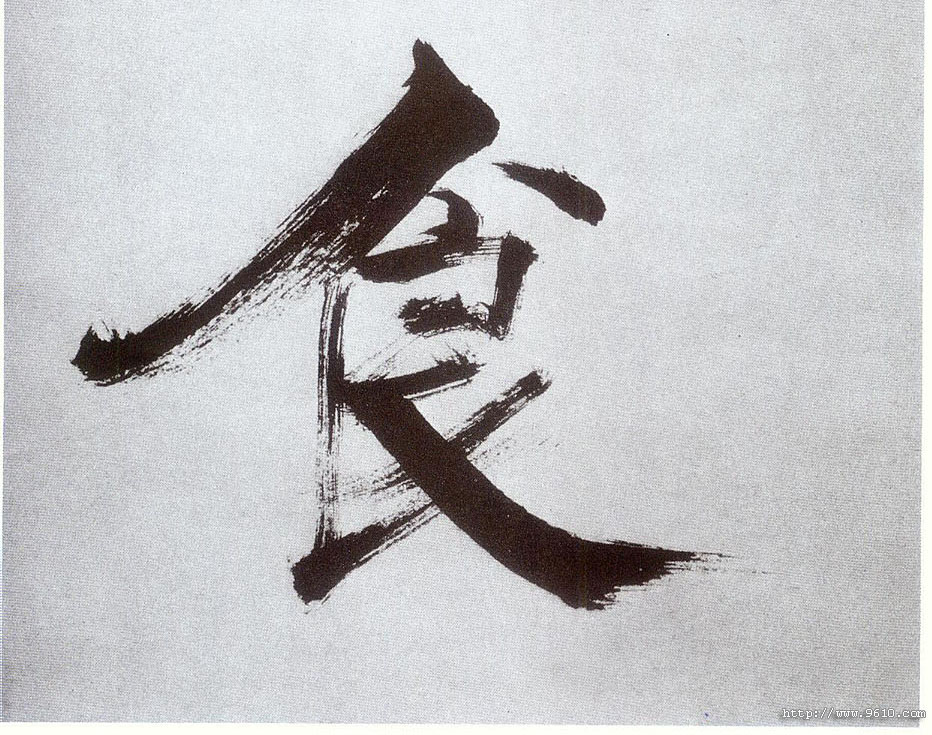 食
http://www.9610.com/